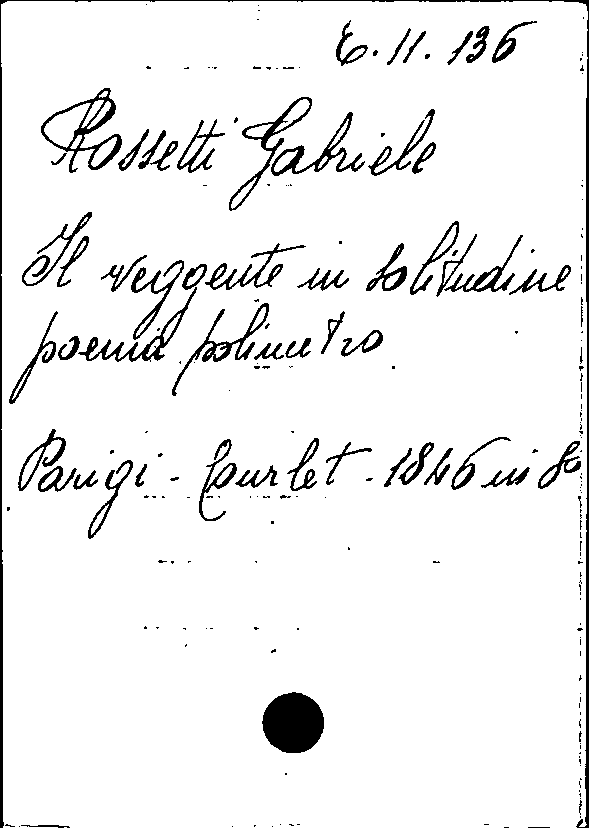 6.11.136
Rossetti Gabriele
Il veggente in solitudine
poema polimetro
Parigi - Courlet - 1846 in 8º